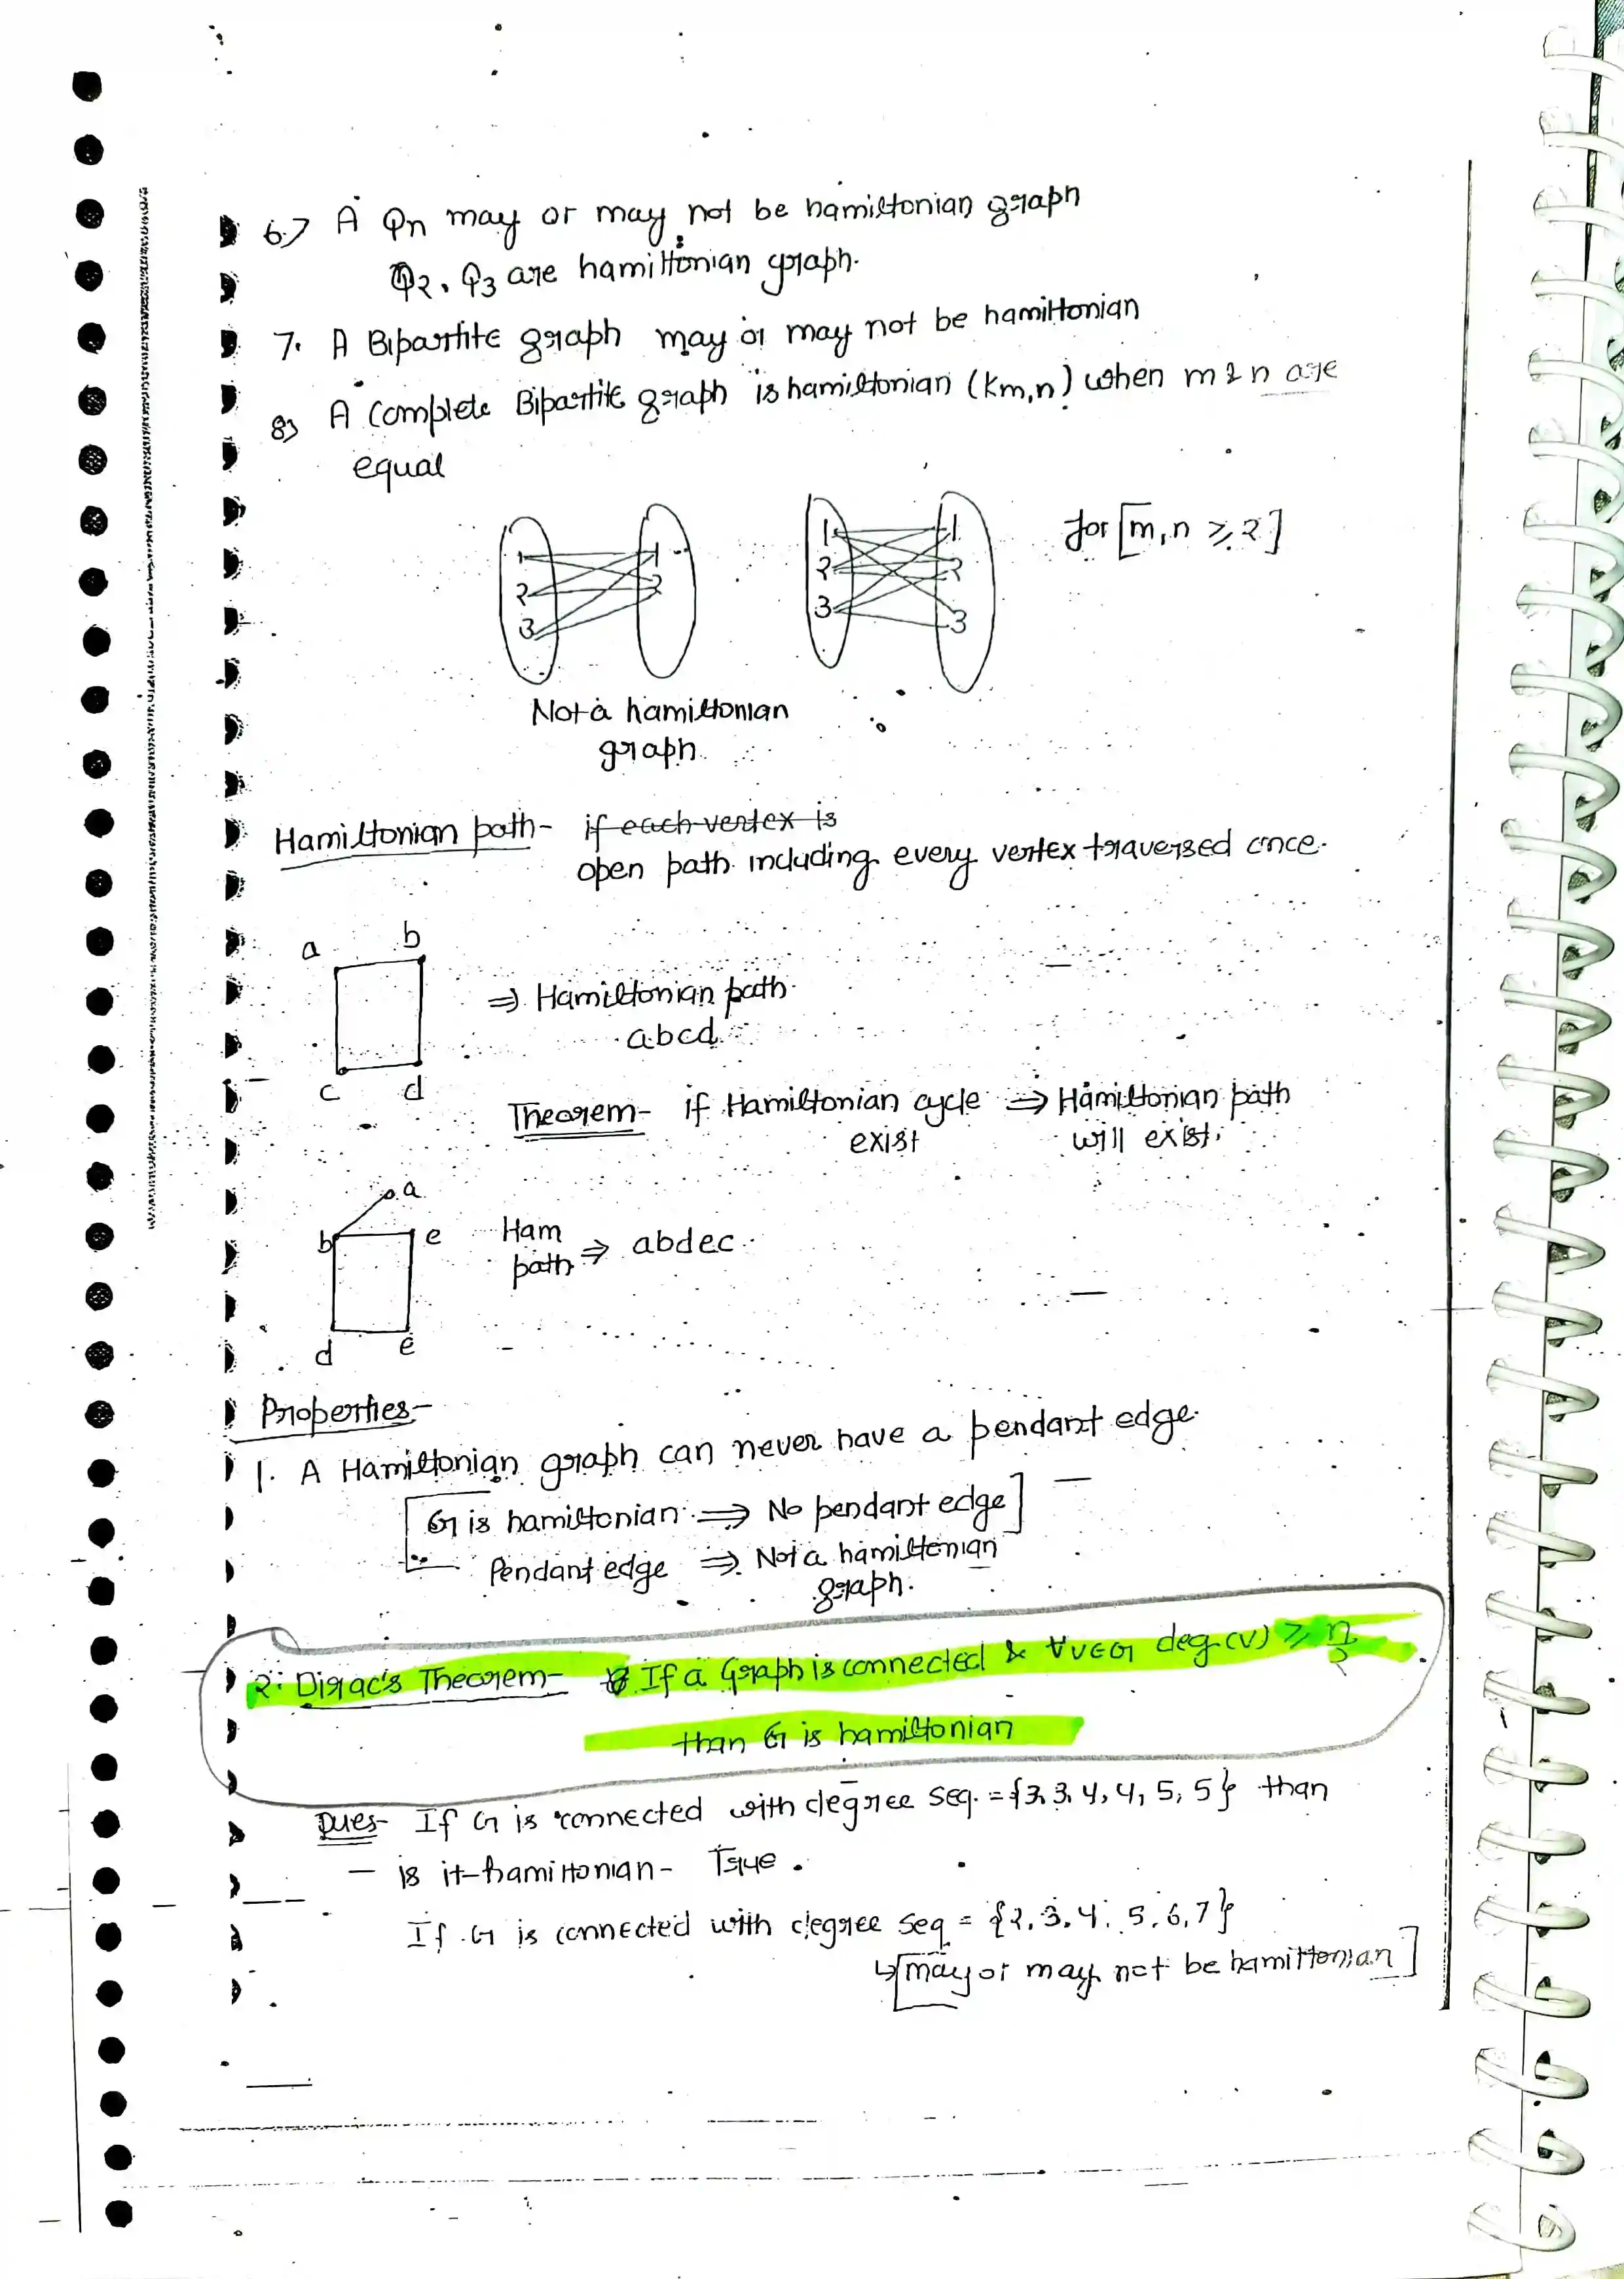 6.7 A Qn may or may not be hamiltonian graph
Q2, Q3 are hamiltonian graph.
7. A Bipartite graph may or may not be hamiltonian
8) A Complete Bipartite graph is hamiltonian (Km,n) when m & n are
equal
1 1 1 1
2 2 2 2
3 3 3
for [m,n ≥ 2]
Not a hamiltonian
graph.
Hamiltonian path - if each vertex is
open path including every vertex traversed once.
a b
⇒ Hamiltonian path
abcd
c d
Theorem - if Hamiltonian cycle ⇒ Hamiltonian path
exist will exist.
a
b e Ham
path ⇒ abdec
d e
Properties -
1. A Hamiltonian graph can never have a pendant edge.
[G is hamiltonian ⇒ No pendant edge]
Pendant edge ⇒ Not a hamiltonian
graph.
2. Dirac's Theorem - If a Graph is connected & ∀v∈G deg.(v) ≥ n/2
than G is hamiltonian
Ques - If G is connected with degree seq. = {3,3,4,4,5,5} than
- is it hamiltonian - True.
If G is connected with degree seq = {2,3,4,5,6,7}
↳ [may or may not be hamiltonian]